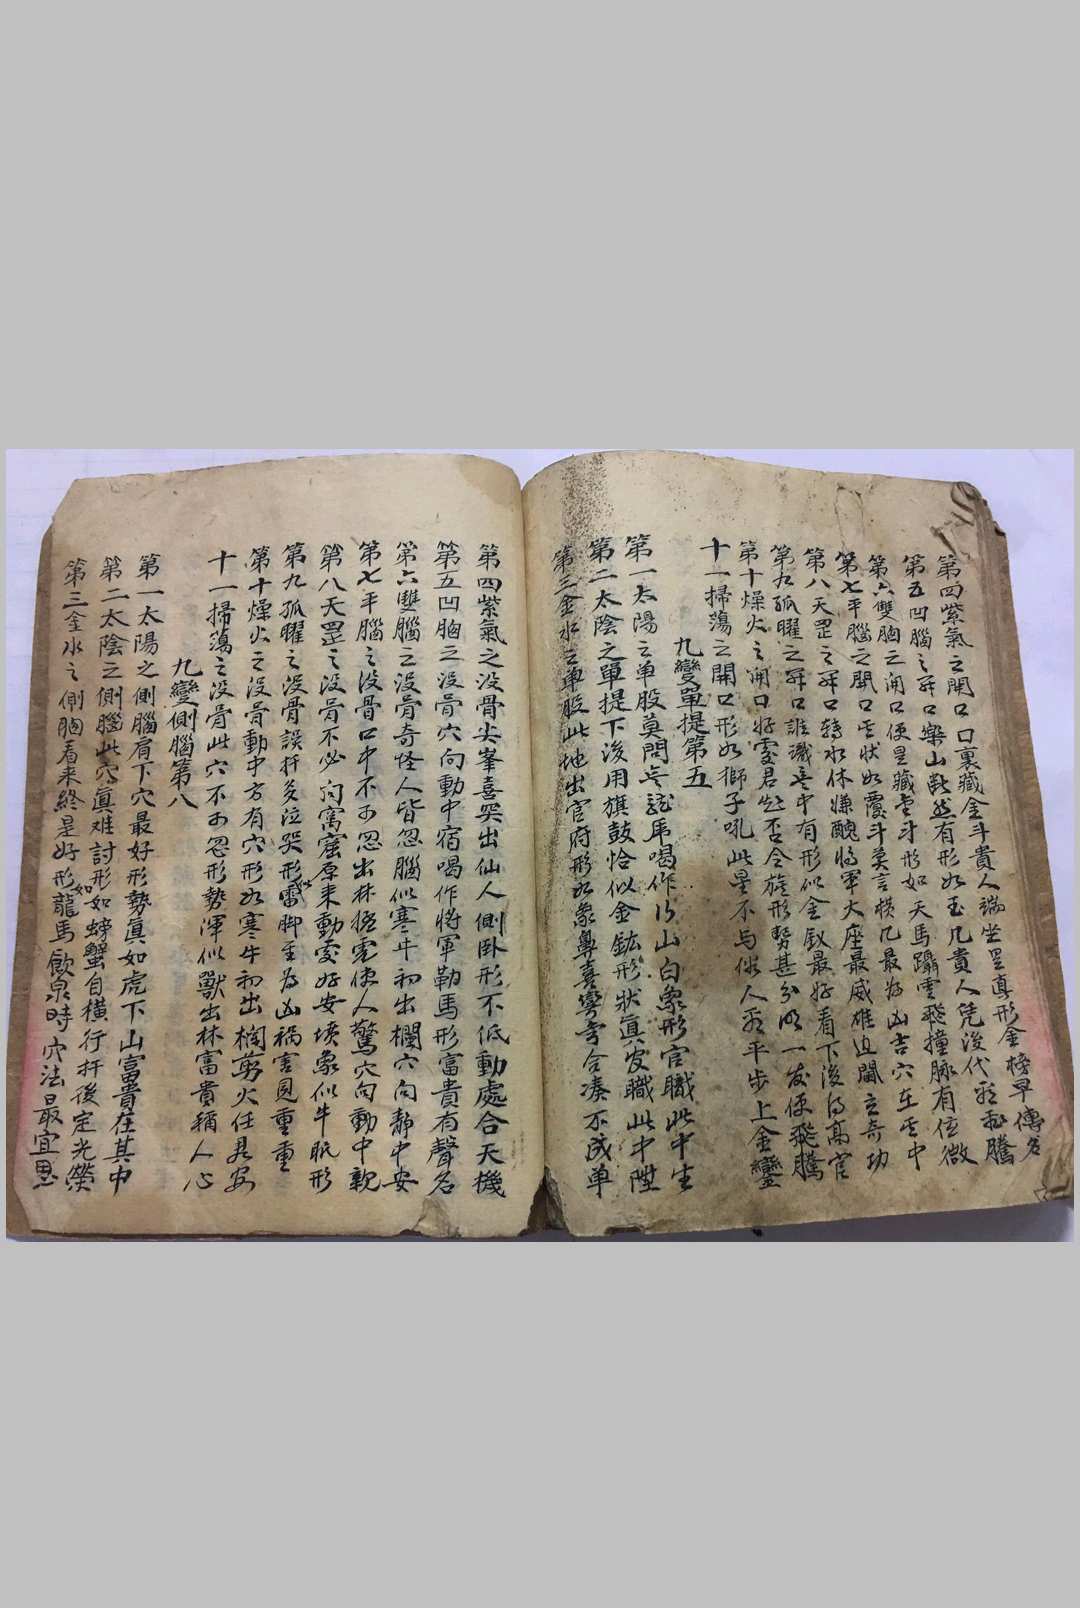 第四紫氣之開口口裏藏金斗貴人端坐是真形金榜早傳名
第五凹腦之開口樂山欹然有形如玉几貴人凭後代飛騰
第六雙胸之開口便是藏斗形如天馬躡雲飛撞脉有位微
第七平腦之開口其狀如覆斗莫言橫几最為凶吉穴在其中
第八天罡之開口轉水休嫌醜將軍大座最威雄邊關立奇功
第九孤曜之開口誰識其中有形似金釵最好看下後得高官
第十燥火之開口好處君知否令旗形勢甚分明一發便飛騰
十一掃蕩之開口形如獅子吼此星不與俗人看平步上金鑾
九變單提第五
第一太陽之单股莫問無龍虎喝作行山白象形官職此中生
第二太陰之單提下後用旗鼓恰似金鈜形狀真文職此中陞
第三金水之单股此地出官府形如象鼻喜彎奇合凑不成单
第四紫氣之没骨尖峯喜突出仙人側卧形不低動處合天機
第五凹胸之没骨穴向動中宿喝作將軍勒馬形富貴有聲名
第六雙腦之没骨奇怪人皆忽腦似寒牛初出欄穴向静中安
第七平腦之没骨口中不可忽出林猛虎使人驚穴向動中親
第八天罡之没骨不必向窩窟原来動處好安墳象似牛眠形
第九孤曜之没骨誤扦多泣哭形露脚主為凶禍害見重重
第十燥火之没骨動中方有穴形如寒牛初出欄剪火任君安
十一掃蕩之没骨此穴不可忽形勢渾似獸出林富貴稱人心
九變側腦第八
第一太陽之側腦肩下穴最好形勢真如虎下山富貴在其中
第二太陰之側腦此穴真难討形如螃蟹自橫行扦後定光榮
第三金水之側胸看来終是好形如龍馬飲泉時穴法最宜思